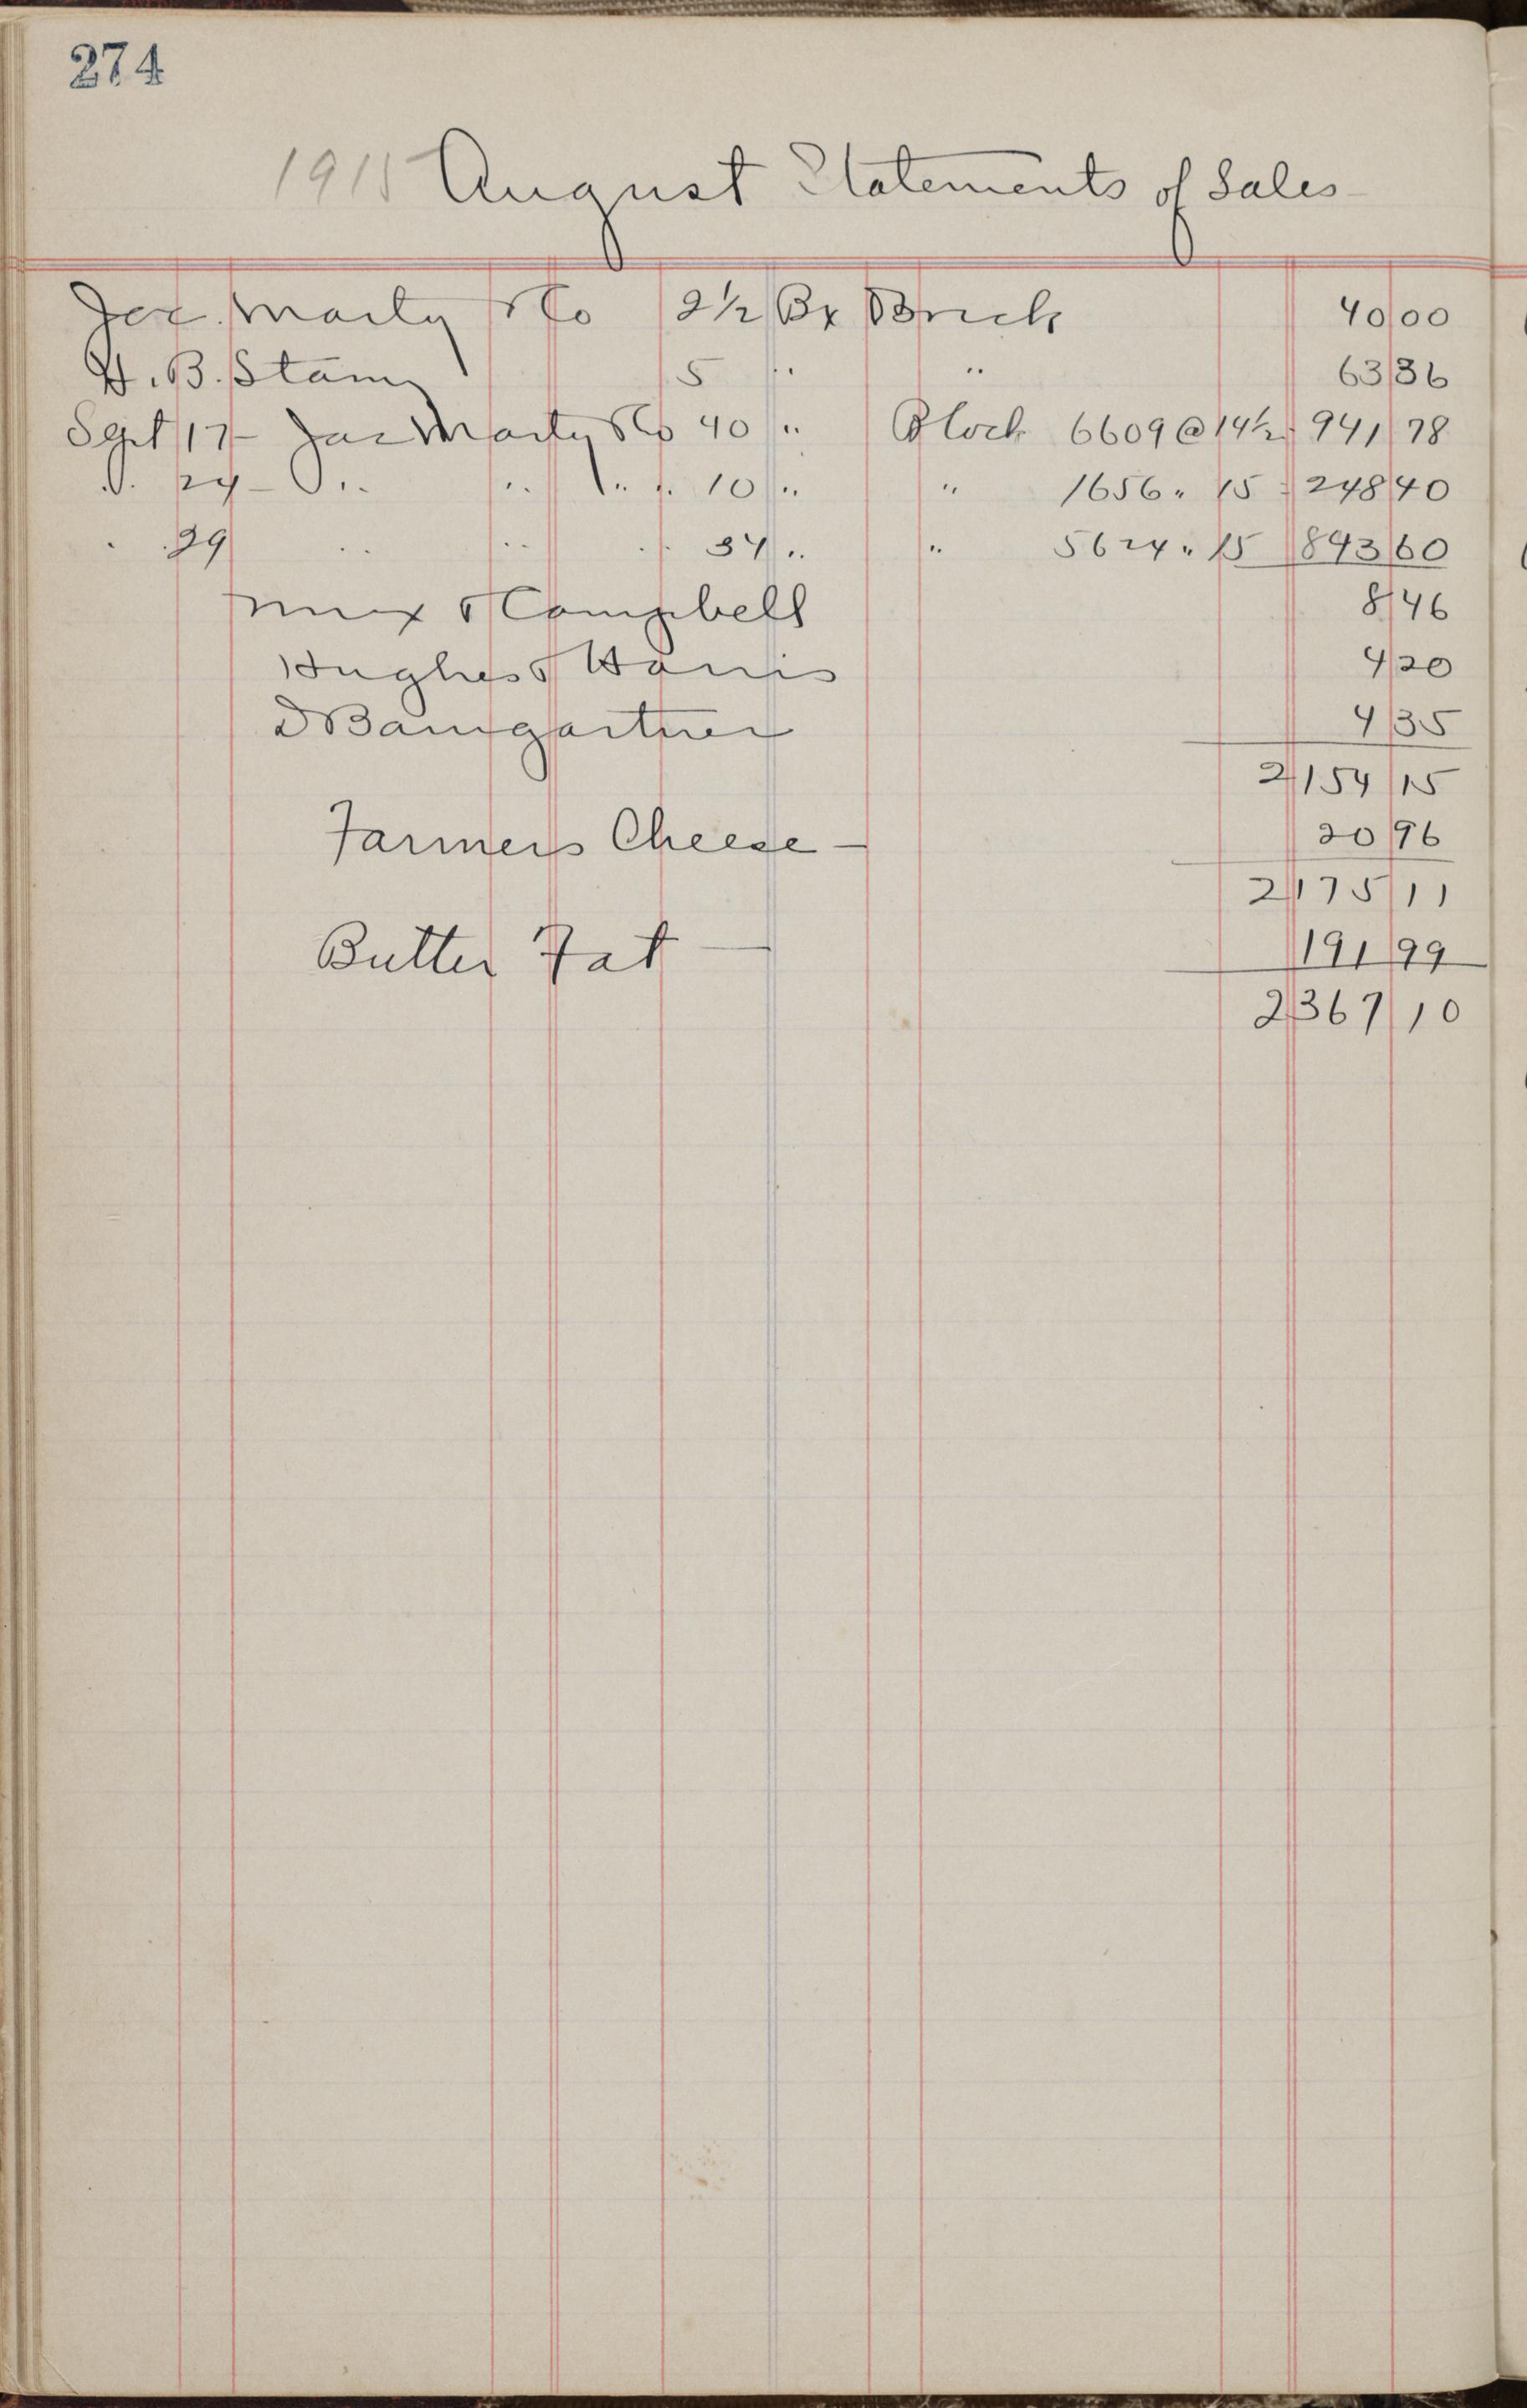 274
1915 August Statements of Sales
Jac. Marty & Co 2½ Bx Brick 40 00
H. B. Stam 5 " " 63 36
Sept 17 - Jac Marty & Co 40 " Block 6609 @ 14½ 941 78
" 24 - " " " " 10 " " 1656 " 15 248 40
" 29 " " " 34 " " 5624 " 15 843 60
& Campbell 8 46
Hughes & Harris 4 20
D Bamgartner 4 35
2154 15
Farmers Cheese - 20 96
2175 11
Butter Fat - 191 99
2367 10